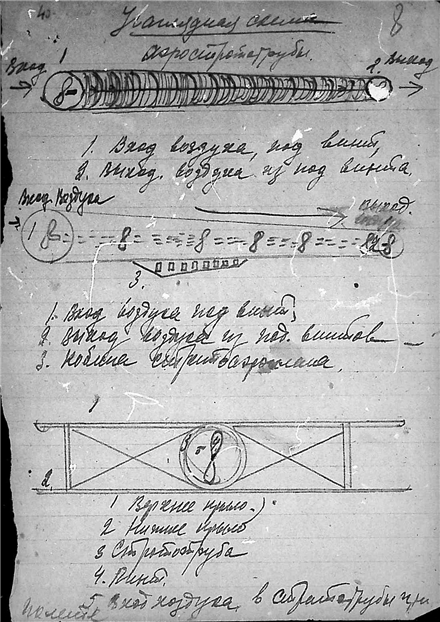 8
Наглядная схема
аэростратотрубы.
Вход 1 2. Выход
8
1. Вход воздуха, под винт,
2. Выход. воздуха из под винта.
Вход. Воздуха выход.
1 8 8 8 8 8 2 8
3.
1. Вход воздуха под винт,
2. Выход воздуха из под. винтов
3. Кабина стратоаэроплана.
1
3 5 4
2.
1 Верхнее крыло.
2 Нижнее крыло
3 Стратотруба
4. Винт.
5. Вход воздуха, в стратотрубы при
полете